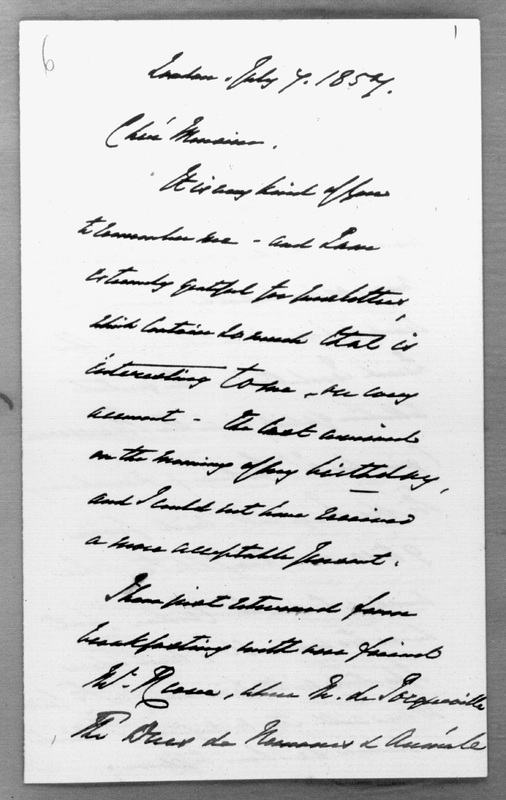 6
1
London. July 7. 1857.
Cher Monsieur,
It is very kind of you
to remember me - and I am
extremely grateful for your letters,
which contain so much that is
interesting to me, on every
account - The last arrived
on the morning of my birthday,
and I could not have received
a more acceptable present.
I have just returned from
breakfasting with our friend
Mr. Reeve, where M. de Tocqueville
The Ducs de Nemours & Aumale